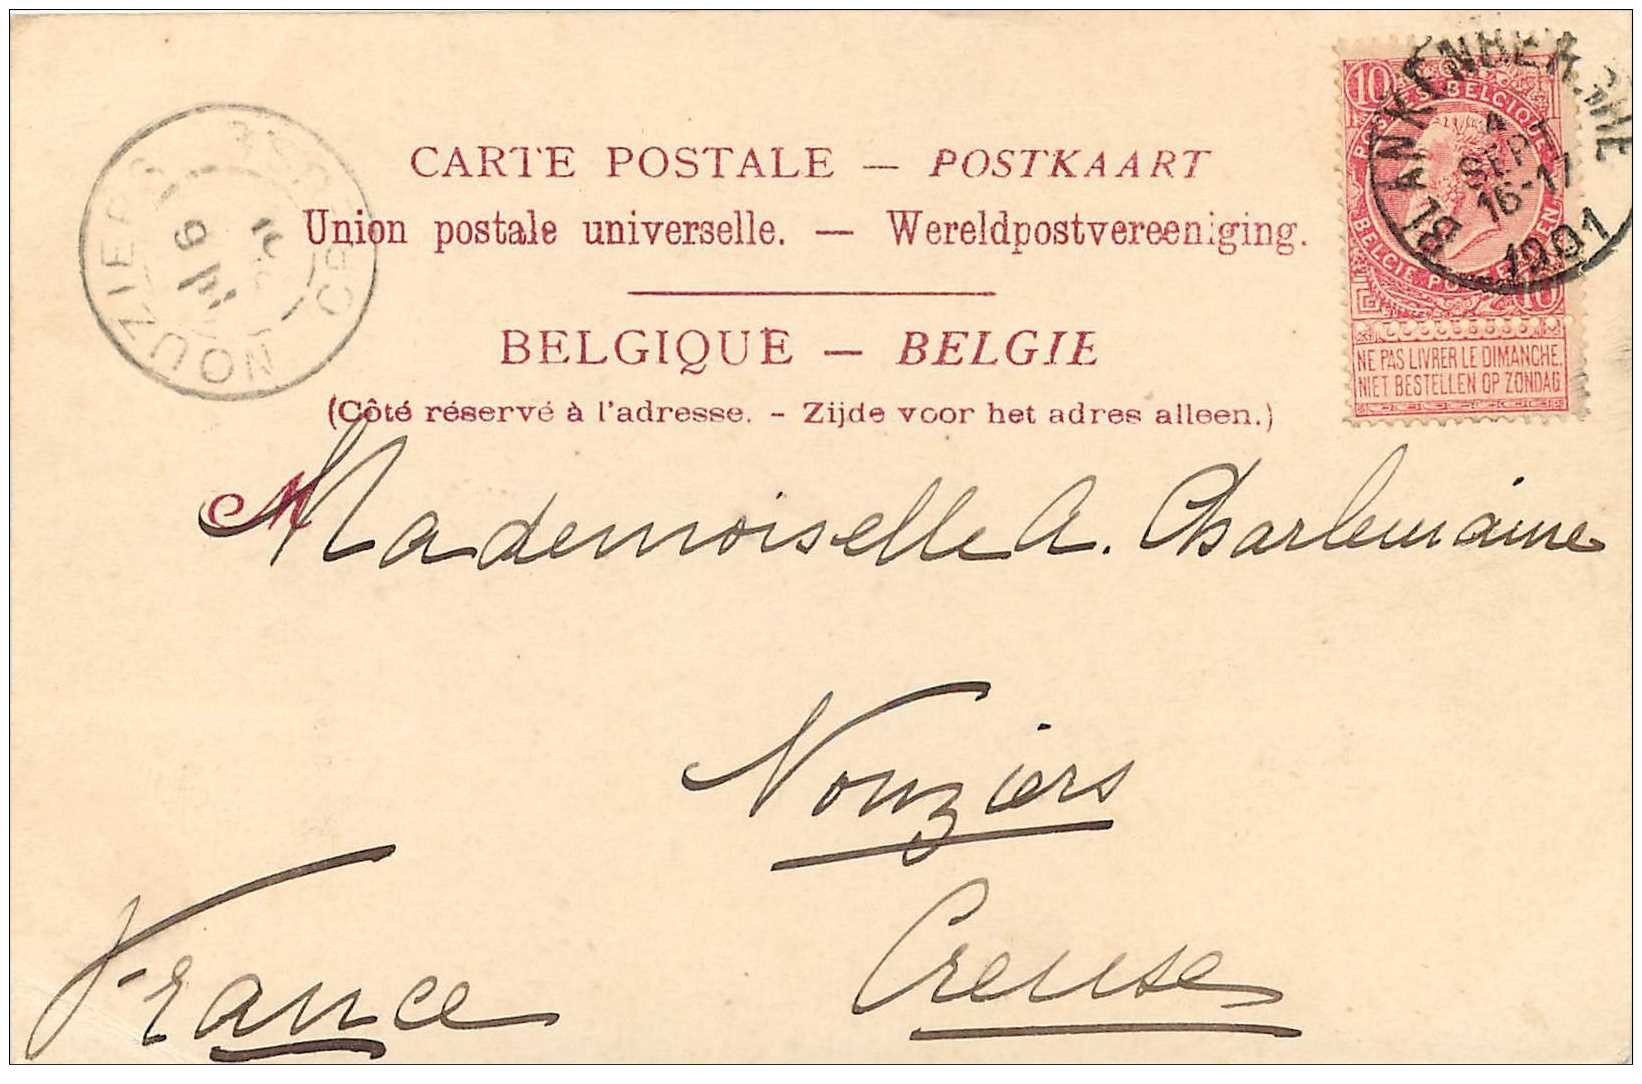 CARTE POSTALE — POSTKAART
Union postale universelle. — Wereldpostvereeniging.
BELGIQUE — BELGIE
(Côté réservé à l'adresse. - Zijde voor het adres alleen.)
10
POSTES BELGIQUE
BELGIE POSTERIJEN
10
NE PAS LIVRER LE DIMANCHE
NIET BESTELLEN OP ZONDAG
BLANKENBERGHE
4
SEPT
16-17
1901
NOUZIERS
CREUSE
6
M
Mademoiselle A. Charlemaine
Nouziers
Creuse
France